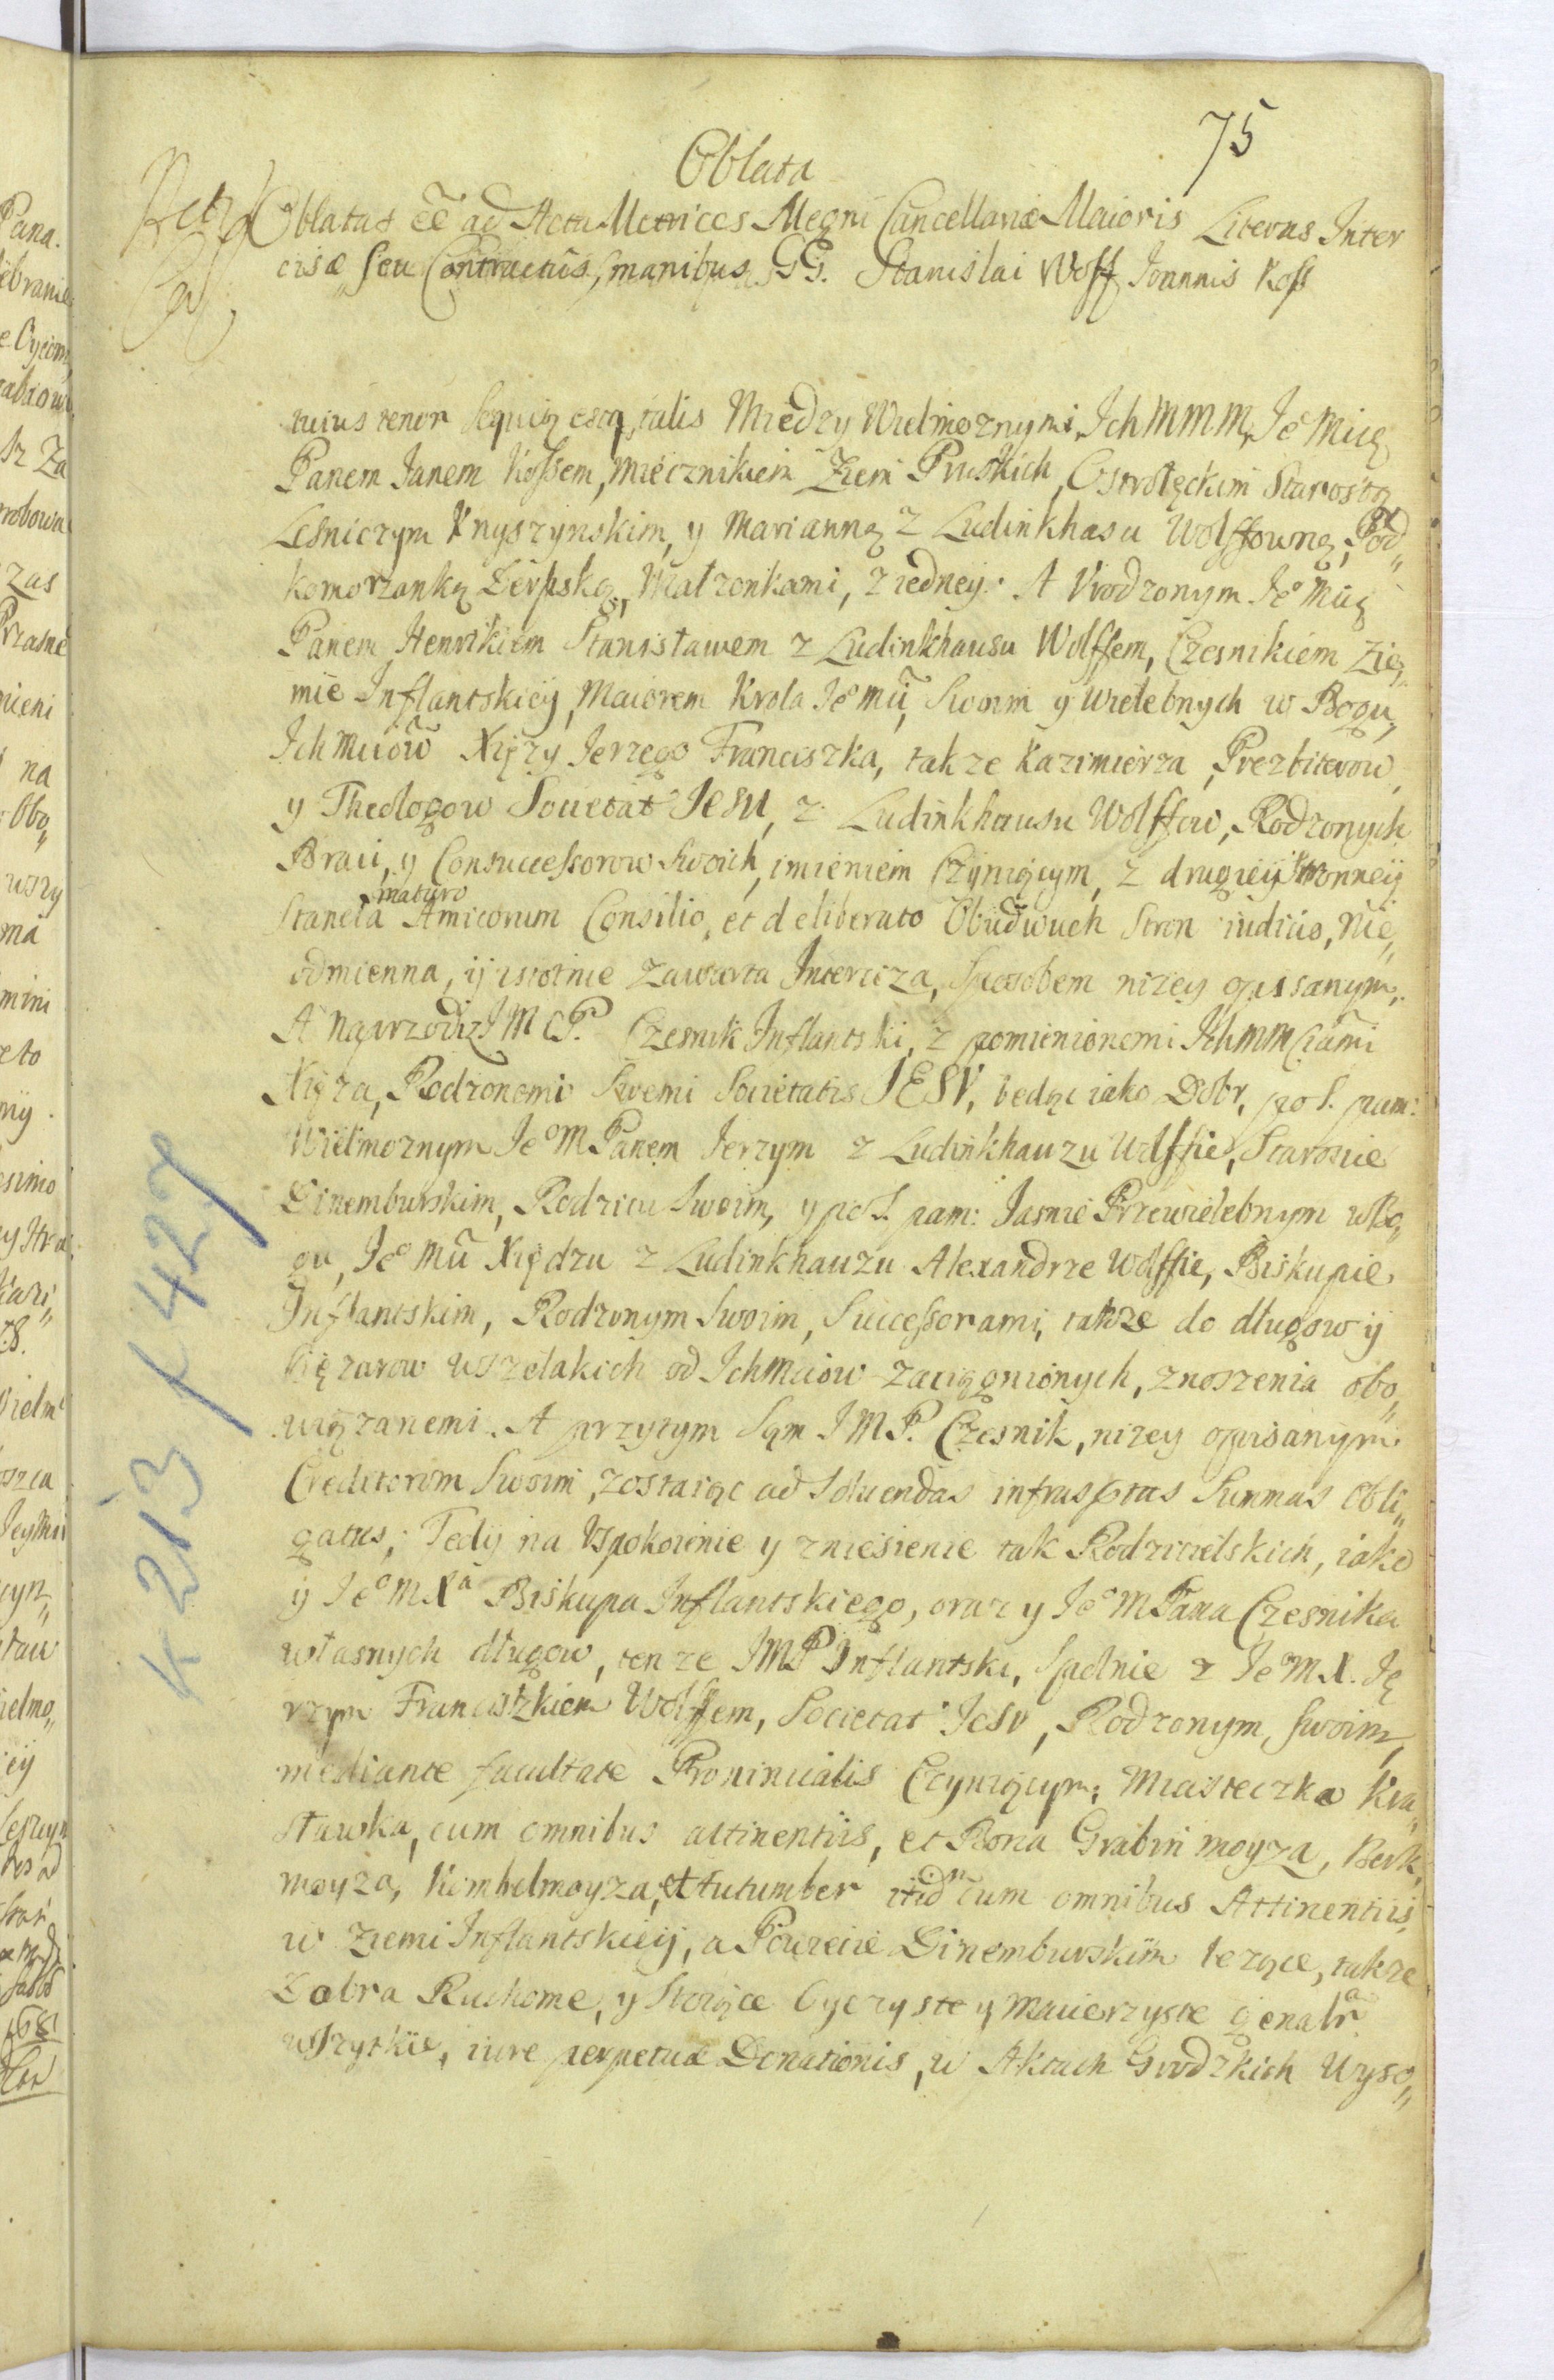 75
Oblata
Oblatas eẽ ad Acta Metrices Regni Cancellariæ Maioris Literas Inter
cisæ seu Contractus, manibus GG. Stanislai Wolff Joannis Koss
cuius tenor sequiẽ estq, talis Miedzy Wielmoznymi, Ich MMM, Jeº Mcią
Panem Janem Kossem, Miecznikiem Ziem Pruskich, Ostrołęckim Starostą
Lesniczym Knyszynskim, y Marianną z Ludinkhasu Wolffowną, Pod„
komorzanką Derpską, Małzonkami, z iedney. A Vrodzonym Jeº Mcią
Panem Henrikiem Stanisławem z Ludinkhausu Wolffem, Czesnikiem Zie„
mie Inflantskiey, Maiorem Krola Jeº Mci, Swoim y Wielebnych w Bogu,
Ich Mciow Xięzy Jerzego Franciszka, takze Kazimierza, Prezbiterow,
y Theologow Societat JESU, z Ludinkhausu Wolffow, Rodzonych
Braci, y Consuccessorow Swoich, imieniem Czyniącym, z drugiey stronney
maturo
Staneła Amicorum Consilio, et deliberato Obudwuch Stron iudicio, Nie„
odmienna, ij istotnie zawarta Interciza, Sposobem nizey opissanym.
A Naprzod iz I M P. Czesnik Inflantski, z pomienionemi Ich MM Ciami
Xięza, Rodzonemi Swemi Societatis JESV, będąc iako Dobr, po S. pam:
Wielmoznym Jeº M Panem Jerzym z Ludinkhauzu Wolffie, Staroscie
Dinemburskim, Rodzicu Swoim, y po S. pam: Jasnie Przewielebnym w Bo„
gu, Jeº Mci Xiędzu z Ludinkhauzu Alexandrze Wolffie, Biskupie
Inflantskim, Rodzonym Swoim, Successorami, takze do długow ij
Cięzarow wszelakich od Ich Mciow zaciągnionych, znoszenia obo„
wiązanemi. A przytym Sąm I M P. Czesnik, nizey opisanym
Creditorom Swoim, zostaiąc ad Soluendas infrasptas Summas Obli„
gatus; Tedij na Vspokoienie y zniesienie tak Rodzicielskich, iako
ij Jeº M Xa Biskupa Inflantskiego, oraz y Jeº M Pana Czesnika
własnych długow, tenze I M P Inflantski, Spolnie z Jeº M X. Je
rzym Franciszkiem Wolffem, Societat JESV, Rodzonym swoim,
mediante facultate Prouincialis Czyniącym; Miasteczka Kra„
sławka, cum omnibus attinentiis, et Bona Grabin moyza, Berk„
moyza, Kombelmoyza, et tutumber itidm cum omnibus Attinentiis
w Ziemi Inflantskieij, a Powiecie Dinemburskim lezące, takze
Dobra Ruchome, y Stoiące Oyczyste y Macierzyste genalr
wszytkie, iure perpetuæ Donationis, w Aktach Grodzkich Wyso„
K 213 / 427